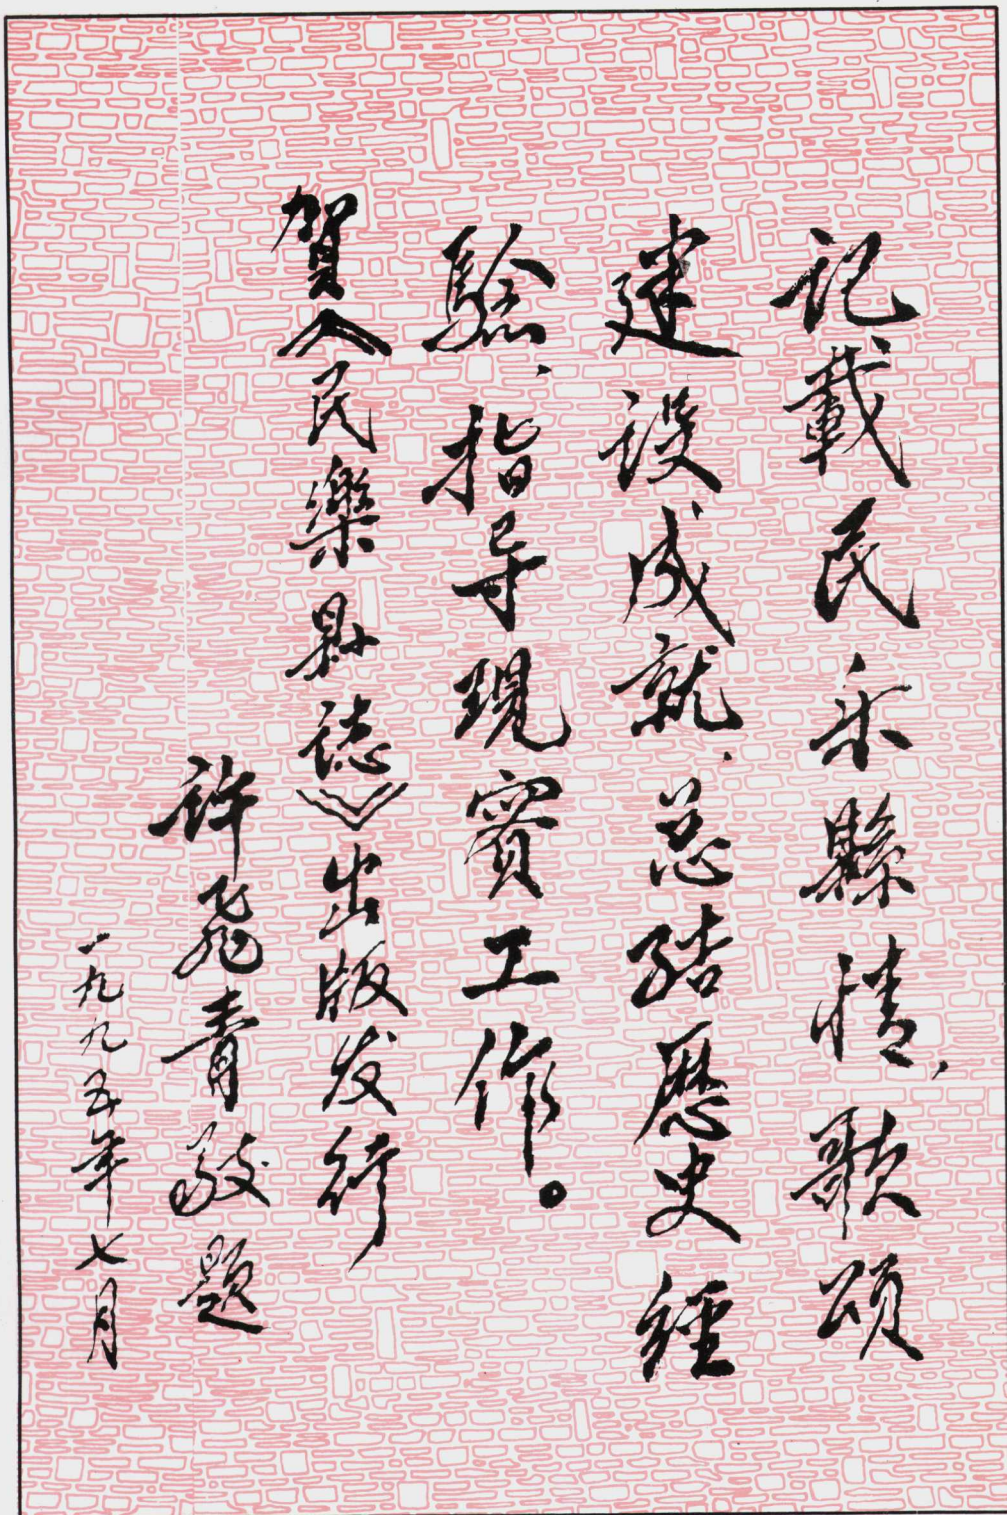 记載民乐縣情，歌頌
建設成就，总结歷史經
驗，指导現實工作。
賀《民樂县誌》出版发行
許飛青敬題
一九九五年七月